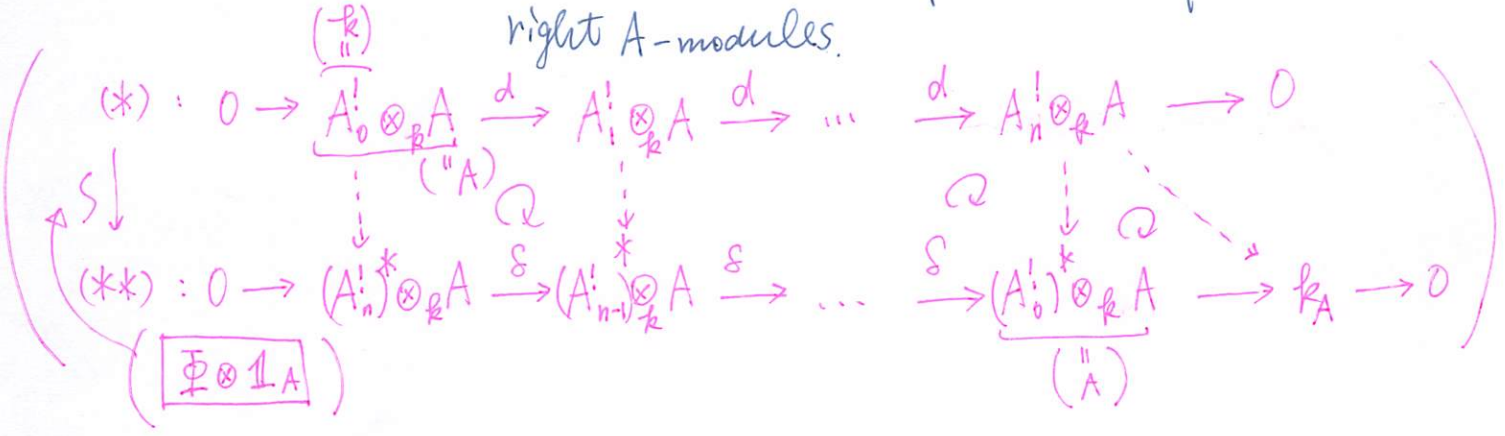 right A-modules.
(k)
"
(*) : 0 → A₀^! ⊗_k A →^d A₁^! ⊗_k A →^d ... →^d A_n^! ⊗_k A → 0
("A)
S↓
(**) : 0 → (A_n^!)^* ⊗_k A →^δ (A_{n-1}^!)^* ⊗_k A →^δ ... →^δ (A₀^!)^* ⊗_k A → k_A → 0
(Φ⊗1_A)
("A)